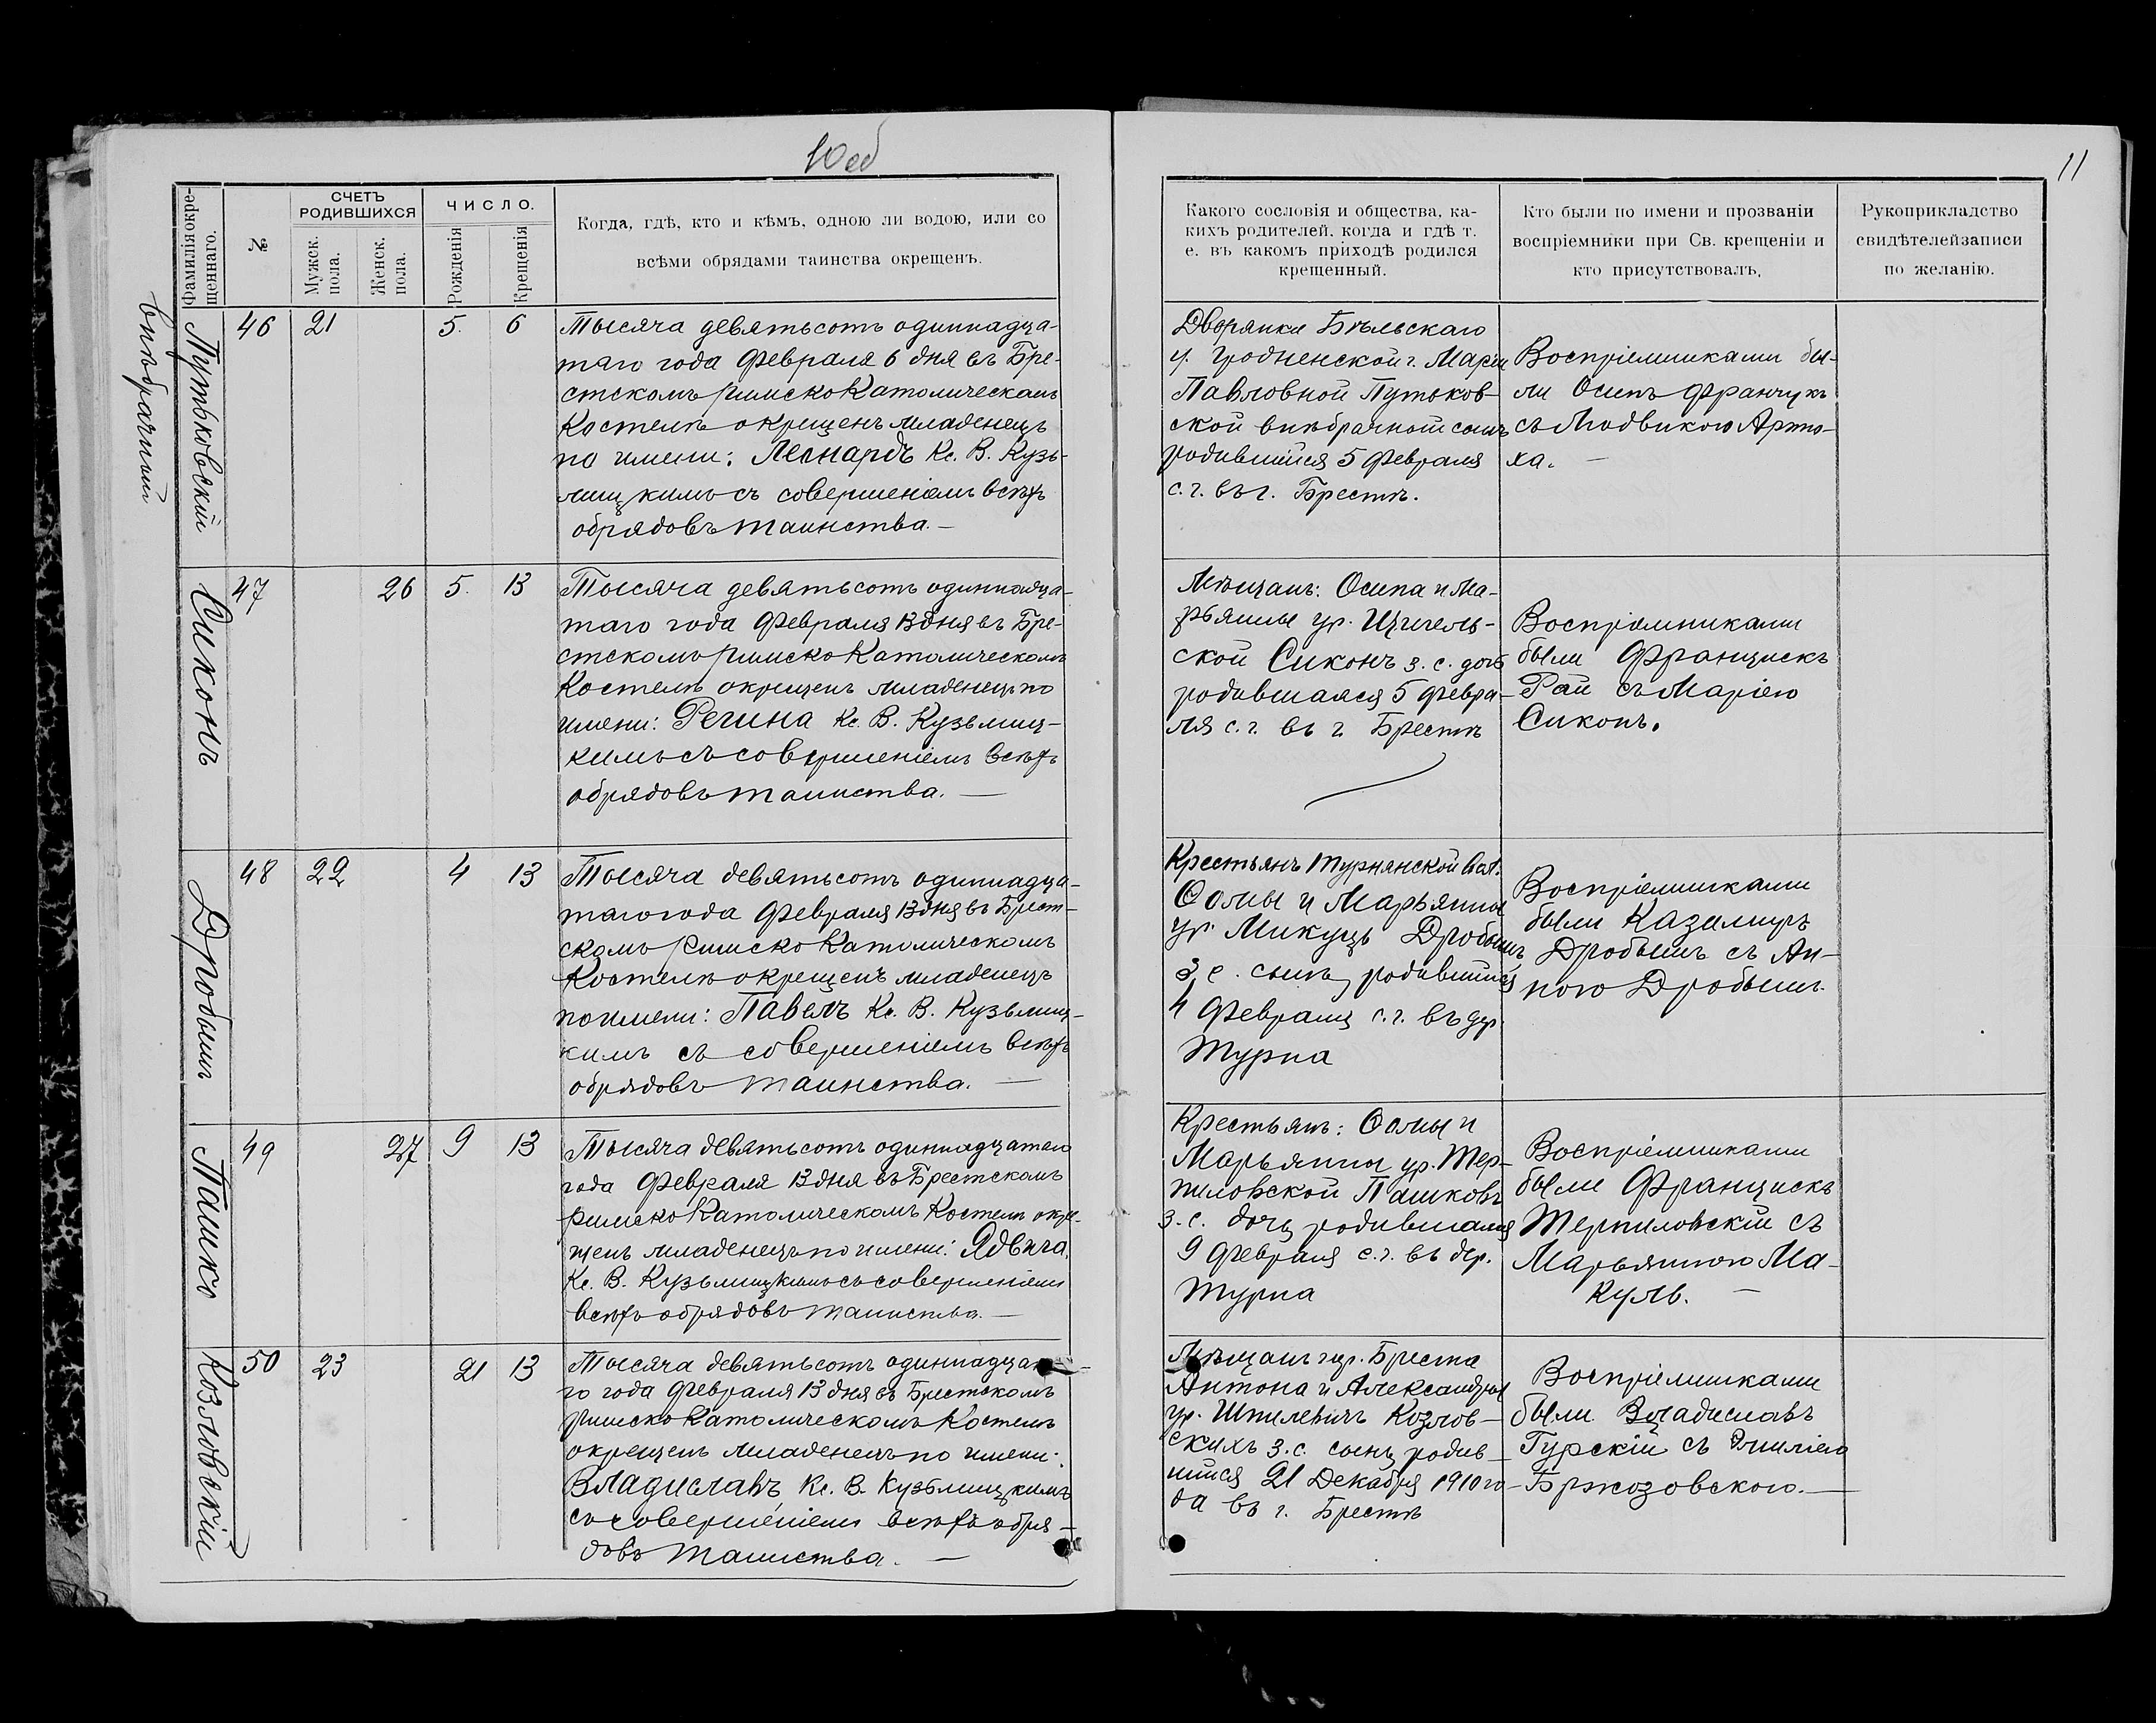 10 об
11
Фамилія окре-
щеннаго.
№
СЧЕТЪ
РОДИВШИХСЯ
Мужск.
пола.
Женск.
пола.
ЧИСЛО.
Рожденія
Крещенія
Когда, гдѣ, кто и кѣмъ, одною ли водою, или со
всѣми обрядами таинства окрещенъ.
Какого сословія и общества, ка-
кихъ родителей, когда и гдѣ т.
е. въ какомъ приходѣ родился
крещенный.
Кто были по имени и прозваніи
воспріемники при Св. крещеніи и
кто присутствовалъ.
Рукоприкладство
свидѣтелей записи
по желанію.
внѣбрачный
Путьковскій
46 21 5. 6
Тысяча девятьсотъ одиннадца-
таго года Февраля 6 дня въ Бре-
стскомъ Римско Католическомъ
Костелѣ окрещенъ младенецъ
по имени: Леонардъ Кс. В. Кузь-
мицкимъ съ совершеніемъ всѣхъ
обрядовъ таинства. —
Дворянки Бѣльскаго
у. Гродненской г. Маріи
Павловной Путьков-
ской внѣбрачный сынъ
родившійся 5 Февраля
с. г. въ г. Брестѣ.
Воспріемниками бы-
ли Осипъ Франчукъ
съ Людвикою Арто-
ха. —
Сиконъ
47 26 5. 13
Тысяча девятьсотъ одиннадца-
таго года Февраля 13 дня въ Бре-
стскомъ Римско Католическомъ
Костелѣ окрещенъ младенецъ по
имени: Регина Кс. В. Кузьмиц-
кимъ съ совершеніемъ всѣхъ
обрядовъ таинства. —
Мѣщанъ: Осипа и Ма-
рьянны ур. Щигель-
ской Сиконъ з. с. дочь
родившаяся 5 Февра-
ля с. г. въ г. Брестѣ
Воспріемниками
были Францискъ
Рай съ Маріею
Сиконъ.
Дробышъ
48 22 4 13
Тысяча девятьсотъ одиннадца-
таго года Февраля 13 дня въ Брест-
скомъ Римско Католическомъ
Костелѣ окрещенъ младенецъ
по имени: Павелъ Кс. В. Кузьмиц-
кимъ съ совершеніемъ всѣхъ
обрядовъ таинства. —
Крестьянъ Турнянской вол.
Ѳомы и Марьянны
ур. Микуць Дробышъ
з. с. сынъ родившійся
4 Февраля с. г. въ дер.
Турна
Воспріемниками
были Казимиръ
Дробышъ съ Ан-
ною Дробышъ.
Пашко
49 27 9 13
Тысяча девятьсотъ одиннадцатаго
года Февраля 13 дня въ Брестскомъ
Римско Католическомъ Костелѣ окре-
щенъ младенецъ по имени: Ядвига,
Кс. В. Кузьмицкимъ съ совершеніемъ
всѣхъ обрядовъ таинства. —
Крестьянъ: Ѳомы и
Марьянны ур. Тер-
пиловской Пашковъ
з. с. дочь родившаяся
9 Февраля с. г. въ дер.
Турна
Воспріемниками
были Францискъ
Терпиловскій съ
Марьянною Ма-
куль. —
Козловскій
50 23 21 13
Тысяча девятьсотъ одиннадцата-
го года Февраля 13 дня въ Брестскомъ
Римско Католическомъ Костелѣ
окрещенъ младенецъ по имени:
Владиславъ Кс. В. Кузьмицкимъ
съ совершеніемъ всѣхъ обря-
довъ таинства. —
Мѣщанъ гор. Бреста
Антона и Александры
ур. Шпилевичъ Козлов-
скихъ з. с. сынъ родив-
шійся 21 Декабря 1910 го-
да въ г. Брестѣ
Воспріемниками
были Владиславъ
Гурскій съ Эмиліею
Бржозовскою. —